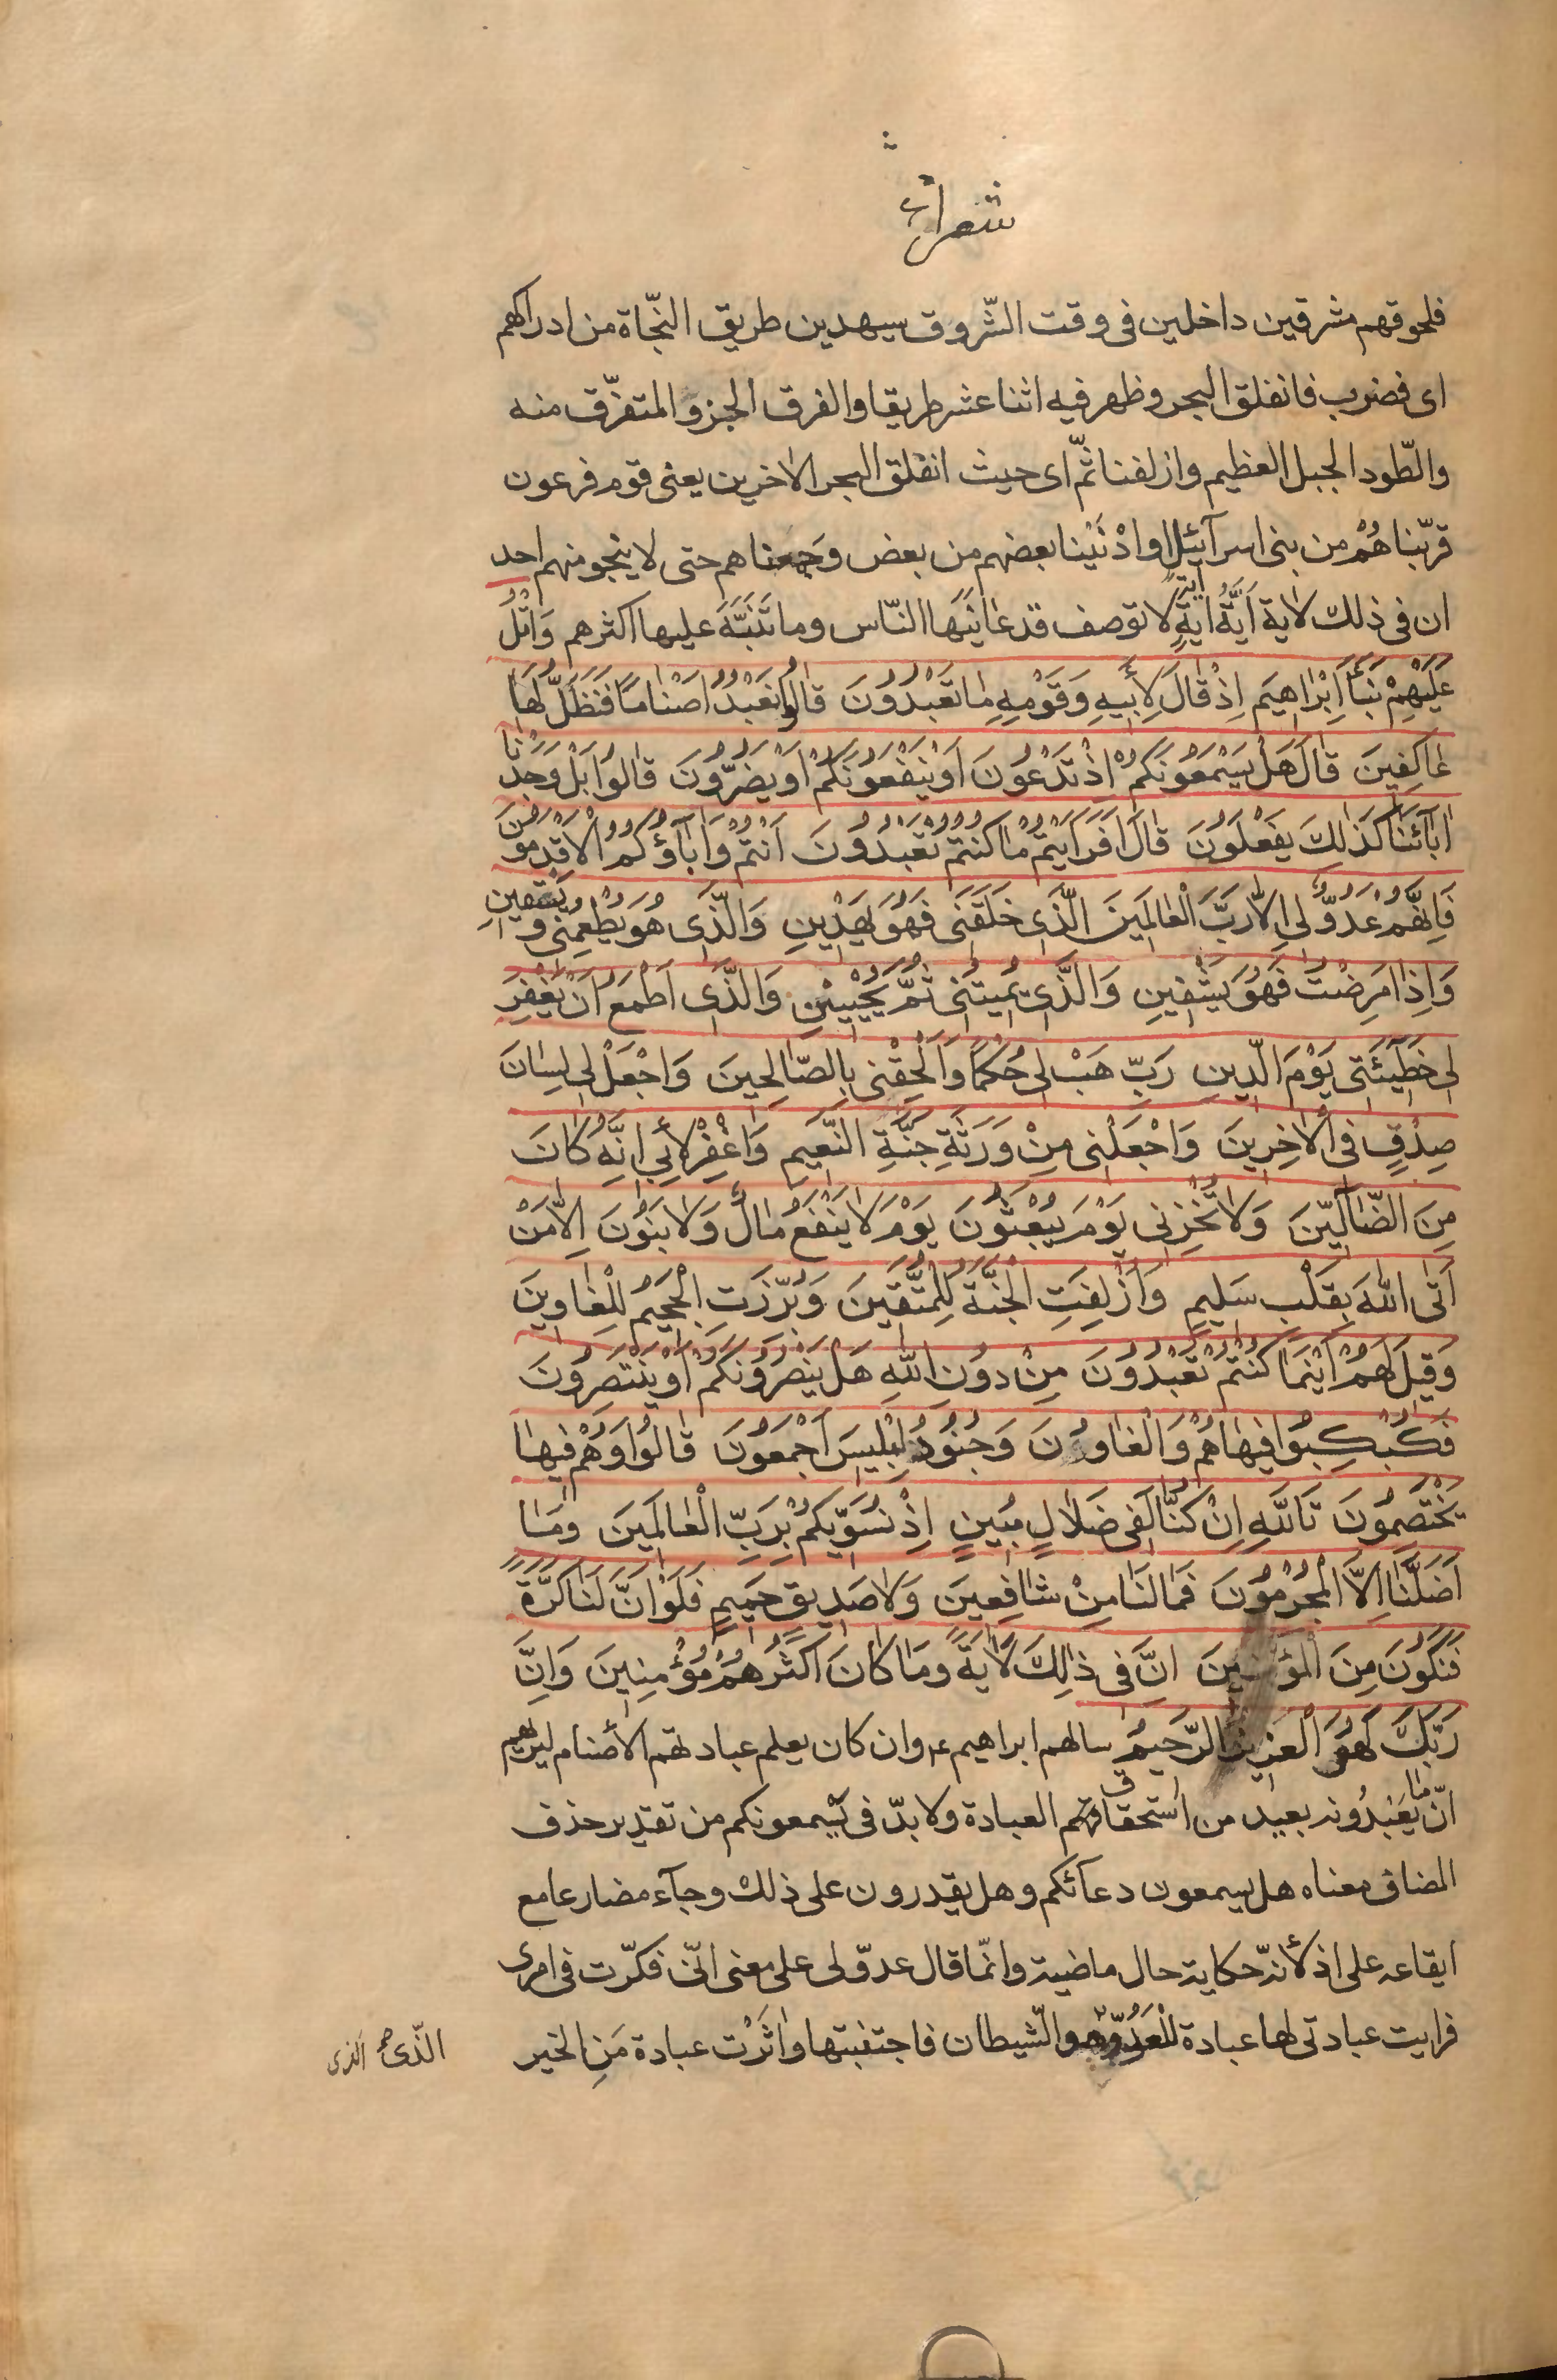 شعراء
فلحوقهم مشرقين داخلين فى وقت الشّروق سيهدين طريق النّجاة من ادراكهم
اى فضرب فانفلق البحر وظهر فيه اثنا عشر طريقا والفرق الجزؤ المتفرّق منه
والطّود الجبل العظيم وازلفنا ثمّ اى حيث انفلق البحر الاخرين يعنى قوم فرعون
قرّبناهُمْ من بنى اسرآئيل او ادْنَيْنا بعضهم من بعض وجمعناهم حتى لا ينجو منهم احد
ان فى ذلك لاية اَيَّةُ ايَةٍ اية لا توصف قد عايَنَهَا النّاس وما تَنَبَّهَ عليها اكثرهم وَاتْلُ
عَلَيْهِمْ نَبَأَ اِبْرٰاهِيمَ اِذْ قٰالَ لِأَبيهِ وَقَوْمِهِ مٰا تَعْبُدُونَ قٰالُوا نَعْبُدُ اَصْنٰامًا فَنَظَلُّ لَهٰا
عٰاكِفِينَ قٰالَ هَلْ يَسْمَعُونَكُمْ اِذْ تَدْعُونَ اَوْ يَنْفَعُونَكُمْ اَوْ يَضُرُّونَ قٰالُوا بَلْ وَجَدْنٰا
اٰبٰآئَنٰا كَذٰلِكَ يَفْعَلُونَ قٰالَ اَفَرَاَيْتُمْ مٰا كُنْتُمْ تَعْبُدُونَ اَنْتُمْ وَاٰبٰآؤُكُمُ الْاَقْدَمُونَ
فَاِنَّهُمْ عَدُوٌّ لى اِلّٰا رَبَّ الْعٰالَمينَ الَّذى خَلَقَنى فَهُوَ يَهْدينِ وَالَّذى هُوَ يُطْعِمُنى وَيَسْقينِ
وَاِذٰا مَرِضْتُ فَهُوَ يَشْفينِ وَالَّذى يُميتُنى ثُمَّ يُحْيينِ وَالَّذى اَطْمَعُ اَنْ يَغْفِرَ
لى خَطيئَتى يَوْمَ الدّينِ رَبِّ هَبْ لى حُكْمًا وَاَلْحِقْنى بِالصّٰالِحينَ وَاجْعَلْ لى لِسٰانَ
صِدْقٍ فى الْاٰخِرينَ وَاجْعَلْنى مِنْ وَرَثَةِ جَنَّةِ النَّعيمِ وَاغْفِرْ لِأَبى اِنَّهُ كٰانَ
مِنَ الضّٰآلّينَ وَلٰا تُخْزِنى يَوْمَ يُبْعَثُونَ يَوْمَ لٰا يَنْفَعُ مٰالٌ وَلٰا بَنُونَ اِلّٰا مَنْ
اَتَى اللهَ بِقَلْبٍ سَليمٍ وَاُزْلِفَتِ الْجَنَّةُ لِلْمُتَّقينَ وَبُرِّزَتِ الْجَحيمُ لِلْغٰاوينَ
وَقيلَ لَهُمْ اَيْنَمٰا كُنْتُمْ تَعْبُدُونَ مِنْ دُونِ اللهِ هَلْ يَنْصُرُونَكُمْ اَوْ يَنْتَصِرُونَ
فَكُبْكِبُوا فيهٰا هُمْ وَالْغٰاوُنَ وَجُنُودُ اِبْليسَ اَجْمَعُونَ قٰالُوا وَهُمْ فيهٰا
يَخْتَصِمُونَ تَاللهِ اِنْ كُنّٰا لَفى ضَلٰالٍ مُبينٍ اِذْ نُسَوّيكُمْ بِرَبِّ الْعٰالَمينَ وَمٰا
اَضَلَّنٰا اِلَّا الْمُجْرِمُونَ فَمٰا لَنٰا مِنْ شٰافِعينَ وَلٰا صَديقٍ حَميمٍ فَلَوْ اَنَّ لَنٰا كَرَّةً
فَنَكُونَ مِنَ الْمُؤْمِنينَ اِنَّ فى ذٰلِكَ لَاٰيَةً وَمٰا كٰانَ اَكْثَرُهُمْ مُؤْمِنينَ وَاِنَّ
رَبَّكَ لَهُوَ الْعَزيزُ الرَّحيمُ سالهم ابراهيم ع وان كان يعلم عبادتهم الأصنام ليريهم
انّ ما يَعْبُدُونه بعيد من استحقاقهم العبادة ولا بدّ فى يسمعونكم من تقدير حذف
المضاف معناه هل يسمعون دعآئكم وهل يقدرون على ذلك وجآء مضارعا مع
ايقاعه على اذ لأنّه حكاية حال ماضية وانّما قال عدوّ لى على معنى انّى فكّرت فى امرى
فرايت عبادتى لها عبادة للْعَدُوِّ وهو الشّيطان فاجتنبتها واٰثَرْت عبادة مَنِ الخير
الّذى صح الذى